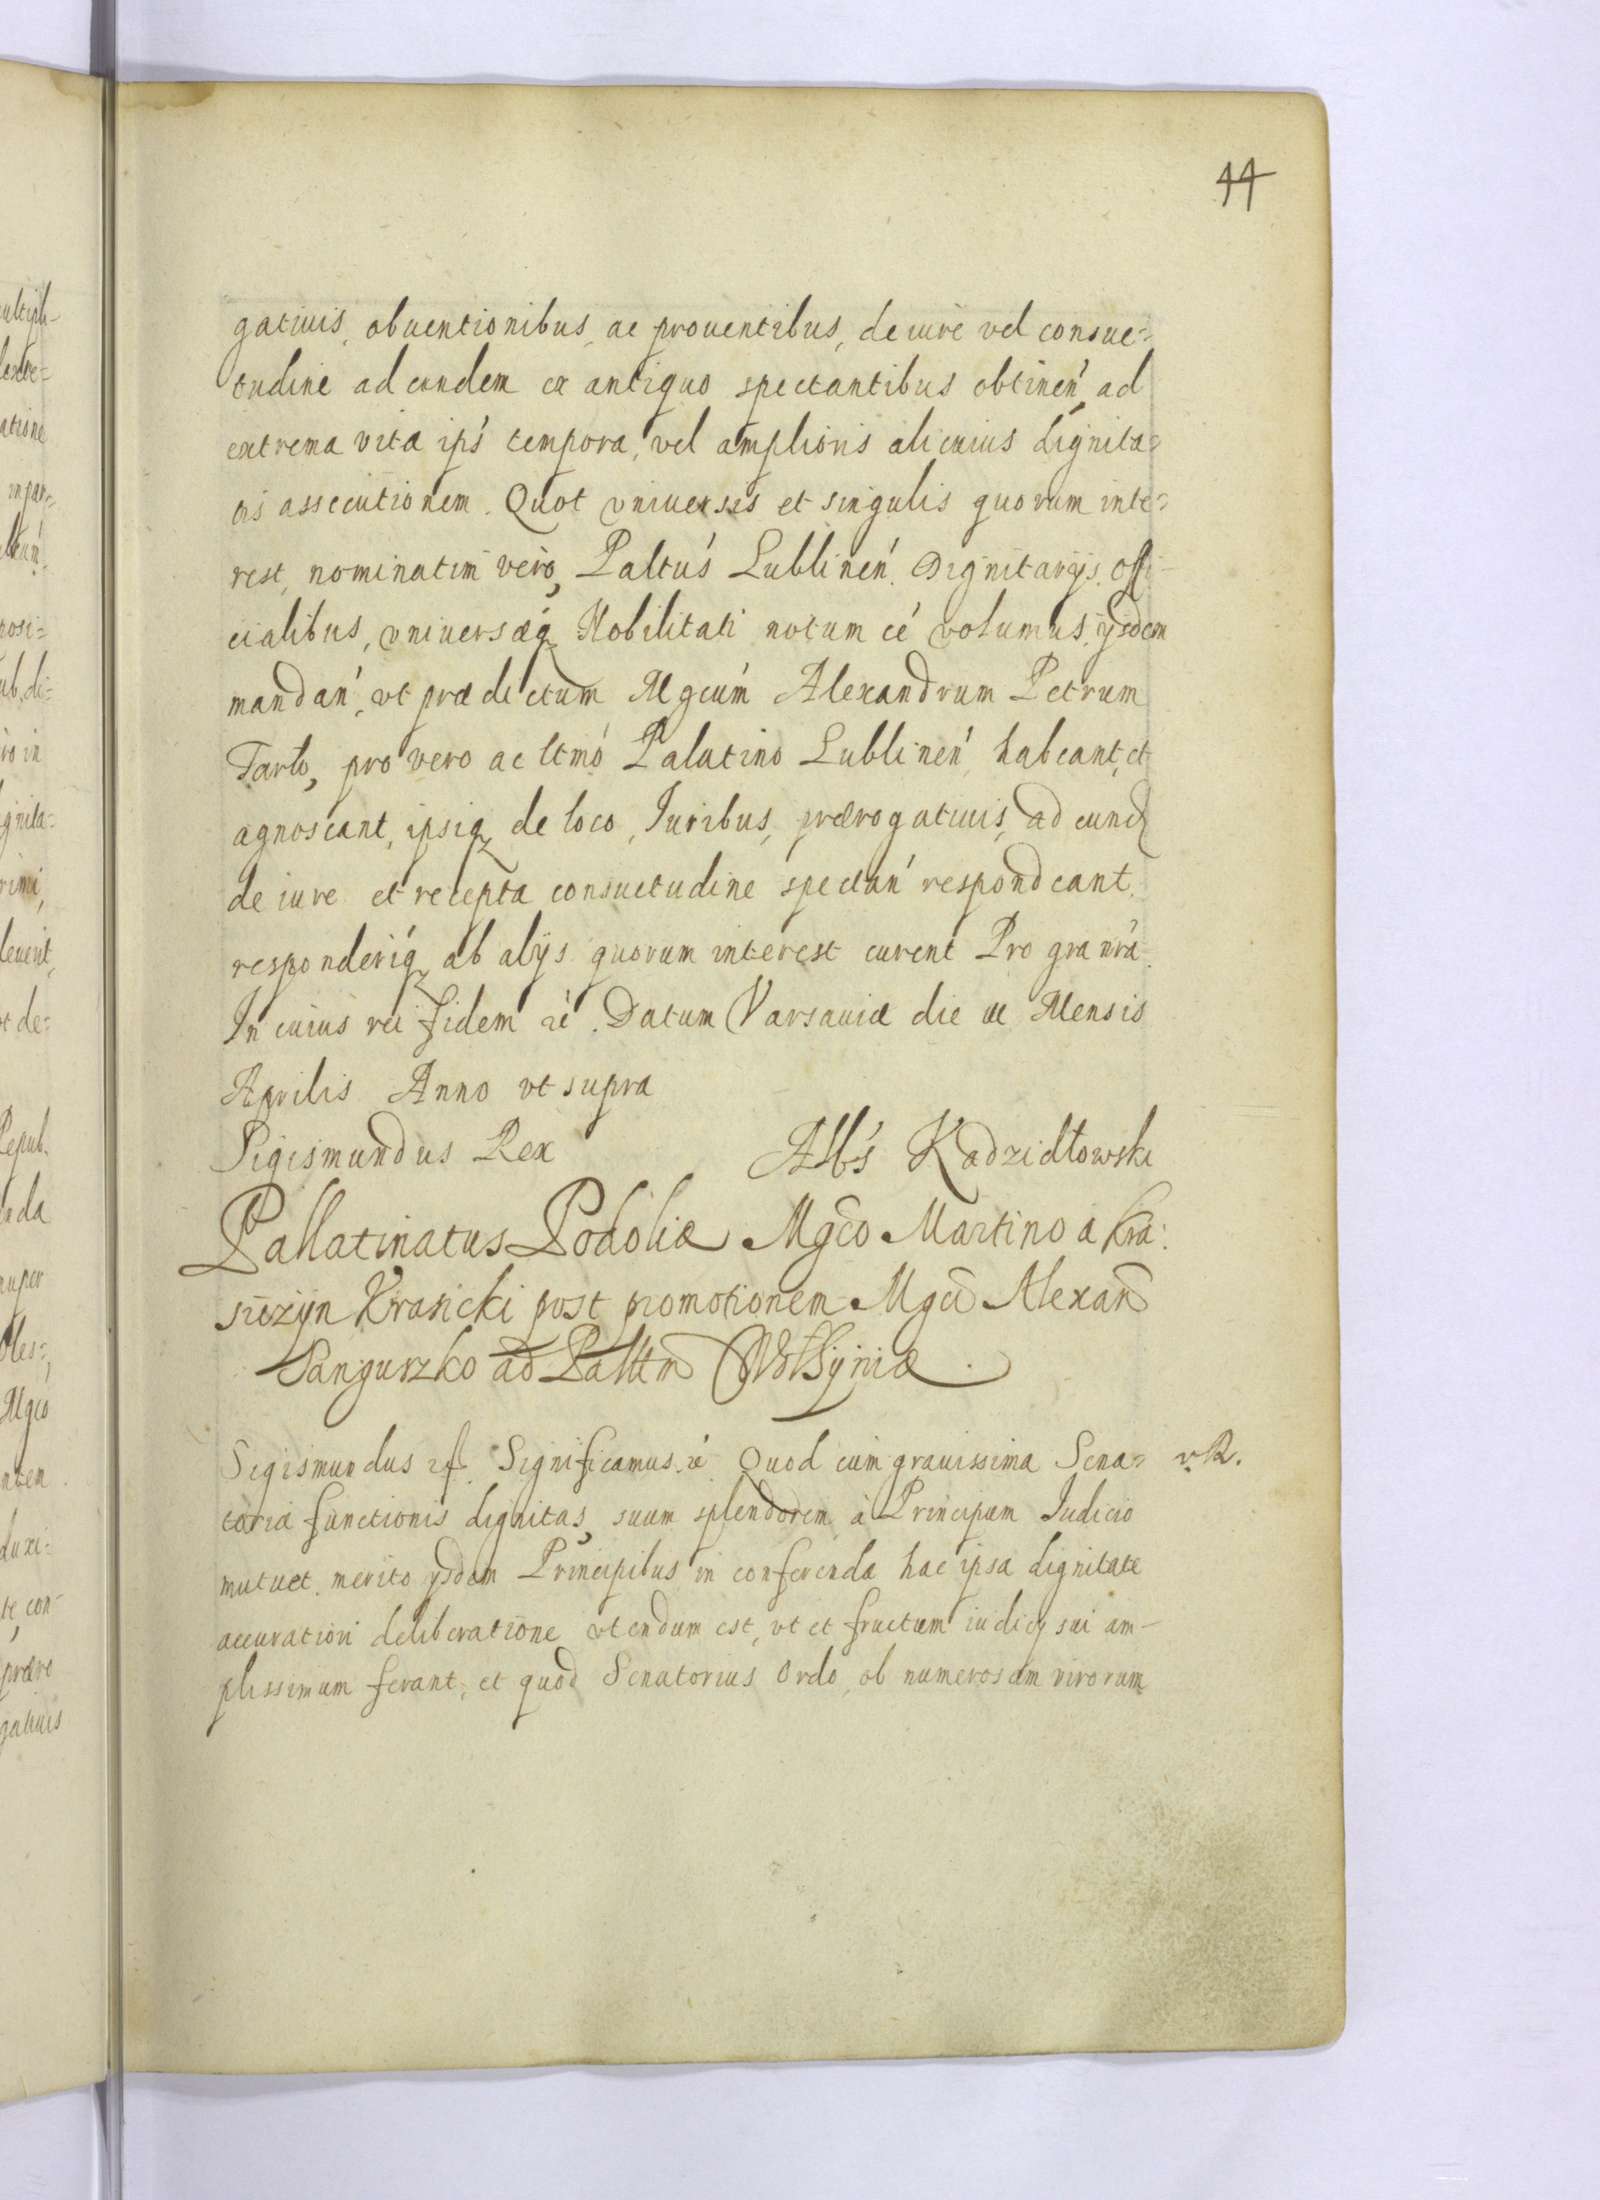 44
gatiuis, obuentionibus, ac prouentibus, de iure vel consue=
tudine ad eundem ex antiquo spectantibus obtinen̓, ad
extrema vitæ ips̓ tempora, vel amplioris alicuius dignita=
tis assecutionem. Quot vniuersis et singulis quorum inte=
rest, nominatim vero, Paltus̓ Lublinen̓. Dignitarijs, offi-
cialibus, vniuersæq Nobilitati notum ee̓ volumus, ijsdem
mandan̓, vt prædictum Mgcum̓ Alexandrum Petrum
Tarło, pro vero ac ltmo̓ Palatino Lublinen̓ habeant, et
agnoscant, ipsiq de loco, Iuribus, prærogatiuis, ad eund
de iure et recepta consuetudine spectan̓ respondeant,
responderiq ab alijs quorum interest curent Pro gra nra̓.
In cuius rei fidem. Datum Varsauiæ die Mensis
Aprilis Anno vt supra
Sigismundus Rex Albs̓ Kadzidłowski
Pallatinatus Podoliæ Mgco Martino a Kra:
siczyn Krasicki post promotionem Mgci Alexan
Sanguszko ad Palltm Wołhyniæ.
Sigismundus Significamus. Quod cum grauissima Sena= v.R.
toriæ functionis dignitas, suum splendorem à Principum Iudicio
mutuet, merito ijsdem Principibus in conferenda hac ipsa dignitate
accuratiori deliberatione vtendum est, vt et fructum iudicij sui am-
plissimum ferant, et quod Senatorius Ordo, ob numerosam virorum